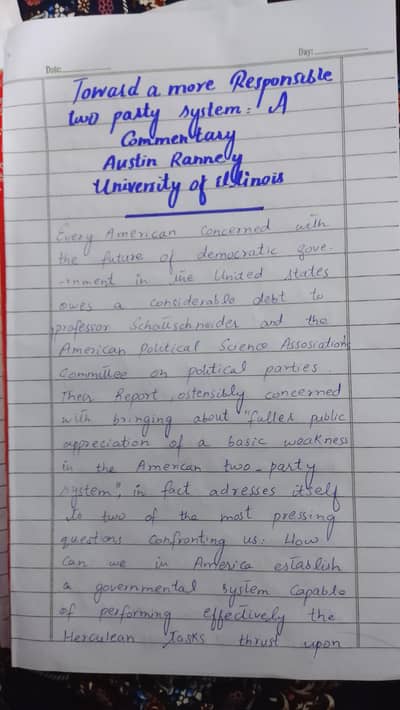 Date:
Day:
Toward a more Responsible
two party system: A
Commentary
Austin Ranney
University of Illinois
Every American concerned with
the future of democratic gove-
rnment in the United states
owes a considerable debt to
professor Schattschneider and the
American Political Science Assosiation's
Committee on political parties.
Their Report, ostensibly concerned
with bringing about "fuller public
appreciation of a basic weakness
in the American two-party
system", in fact adresses itself
to two of the most pressing
questions confronting us: How
can we in America establish
a governmental system capable
of performing effectively the
Herculean Tasks thrust upon